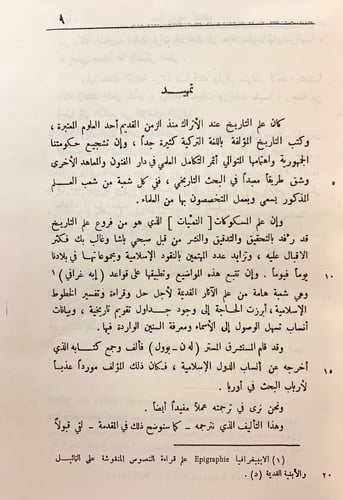 ٩
تمهيد
كان علم التاريخ عند الأتراك منذ الزمن القديم أحد العلوم المعتبرة ،
وكتب التاريخ المؤلفة باللغة التركية كثيرة جداً ، وإن تشجيع حكومتنا
الجمهورية واهتمامها المتوالي أثمر التكامل العلمي في دار الفنون والمعاهد الأخرى
وشق طريقاً معبداً في البحث التاريخي ، ففي كل شعبة من شعب العلم ٥
المذكور يسعى ويعمل المتخصصون بها من العلماء .
وإن علم المسكوكات [ النميّات ] الذي هو من فروع علم التاريخ
قد رُفد بالتحقيق والتدقيق والنشر من قبل صبحي باشا وغالب بك فكثر
الاقبال عليه ، وتزايد عدد المهتمين بالنقود الإسلامية وبمجموعاتها في بلادنا
يوماً فيوماً . وإن تتبع هذه المواضيع وتطبيقها على قواعد ( إبه غرافي ) ١ ١٠
وهي شعبة هامة من علم الآثار القديمة لأجل حل وقراءة وتفسير الخطوط
الإسلامية ، أبرزت الحاجة إلى وجود جداول تقويم تاريخية ، وبيانات
أنساب تسهل الوصول إلى الأسماء ومعرفة السنين الواردة فيها .
وقد قام المستشرق المستر ( له ن ـ پوول ) فألف وجمع كتابه الذي
أخرجه عن أنساب الدول الإسلامية ، فكان ذلك المؤلف مورداً عذباً ١٥
لأرباب البحث في أوربا .
ونحن نرى في ترجمته عملاً مفيداً أيضاً .
وهذا التأليف الذي نترجمه ـ كما سنوضح ذلك في المقدمة ـ لقي قبولاً
(١) الايبيغرافيا Epigraphie علم قراءة النصوص المنقوشة على التماثيل
والأبنية القديمة (د) . ٢٠